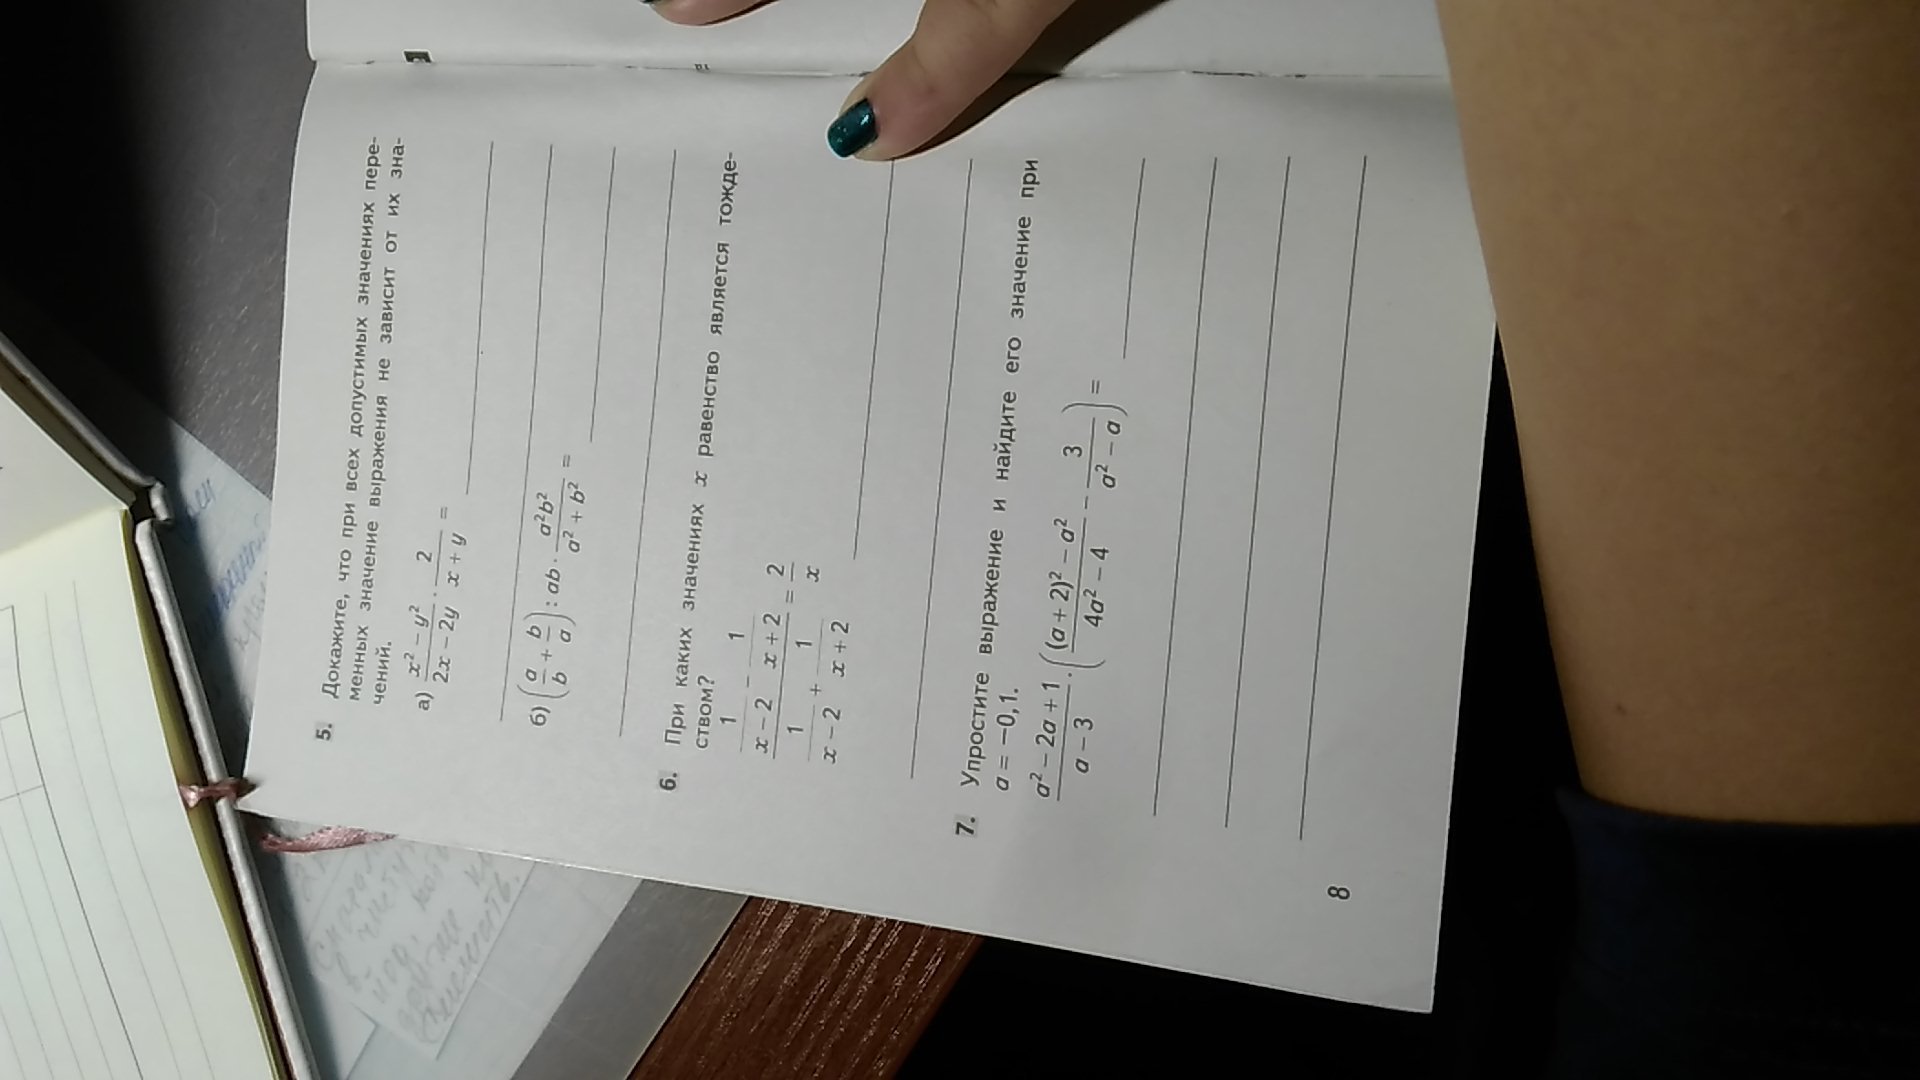 5. Докажите, что при всех допустимых значениях пере-
менных значение выражения не зависит от их зна-
чений.
а) \frac{x^2 - y^2}{2x - 2y} \cdot \frac{2}{x + y} =
б) \left(\frac{a}{b} + \frac{b}{a}\right) : ab \cdot \frac{a^2b^2}{a^2 + b^2} =
6. При каких значениях x равенство является тожде-
ством?
\frac{\frac{1}{x - 2} - \frac{1}{x + 2}}{\frac{1}{x - 2} + \frac{1}{x + 2}} = \frac{2}{x}
7. Упростите выражение и найдите его значение при
a = −0,1.
\frac{a^2 - 2a + 1}{a - 3} \cdot \left(\frac{(a + 2)^2 - a^2}{4a^2 - 4} - \frac{3}{a^2 - a}\right) =
8